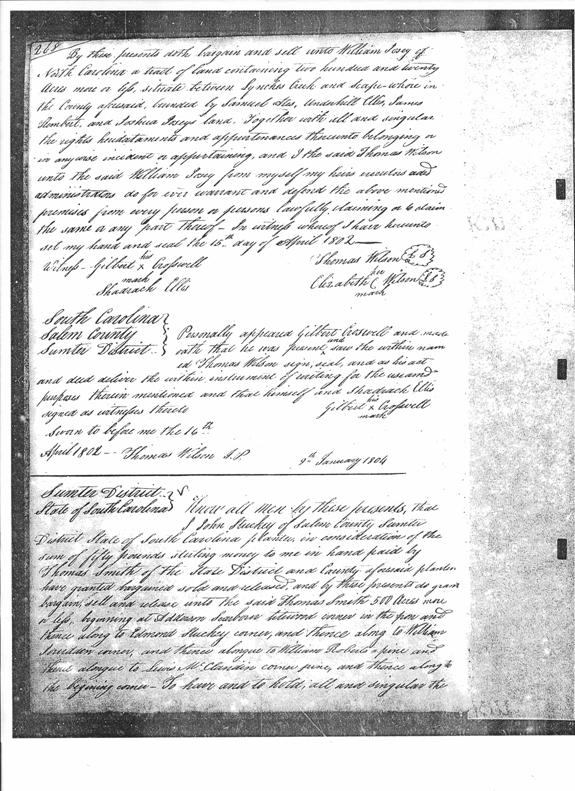 268
By these presents doth bargain and sell unto William Josey of
North Carolina a tract of land containing two hundred and twenty
Acres more or less, situate between Lynches Creek and Scape-whore in
the County aforesaid, bounded by Samuel Ates, Underhill Ellis, James
Rembert, and Joshua Joseys land. Together with all and singular
the rights heridataments and appurtenances thereunto belonging or
in anywise incident or appertaining, and I the said Thomas Wilson
unto the said William Josey from myself my heirs executors and
administrators do for ever warrant and defend the above mentioned
premises from every person or persons lawfully claiming or to claim
the same or any part thereof - In witness whereof I have hereunto
set my hand and seal the 15th day of April 1802
Witness - Gilbert his x mark Crosswell Thomas Wilson
Shadrach Ellis Elizabeth her mark Wilson
South Carolina
Salem County
Sumter District
Personally appeared Gilbert Crosswell and made
oath that he was present and saw the within nam
ed Thomas Wilson sign, seal, and as his act
and deed deliver the within instrument of writing for the uses and
purposes therein mentioned and that himself and Shadrach Ellis
signed as witnesses thereto Gilbert his x mark Crosswell
Sworn to before me the 16th
April 1802 -- Thomas Wilson J.P. 9th January 1804
Sumter District
State of South Carolina
Know all men by these presents, that
I John Stuckey of Salem County Sumter
District State of South Carolina planter in consideration of the
sum of fifty pounds sterling money to me in hand paid by
Thomas Smith of the State District and County aforesaid planter
have granted bargained sold and released, and by these presents do grant
bargain, sell and release unto the said Thomas Smith 500 Acres more
or less, begining at Dearborn corner in the pon and
thence along to Edmond Stuckey corner, and thence along to William
corner, and thence alongue to William Roberts a pine and
thence alongue to Lewis McClendin corner pine, and thence along to
the begining corner - To have and to hold, all and singular the